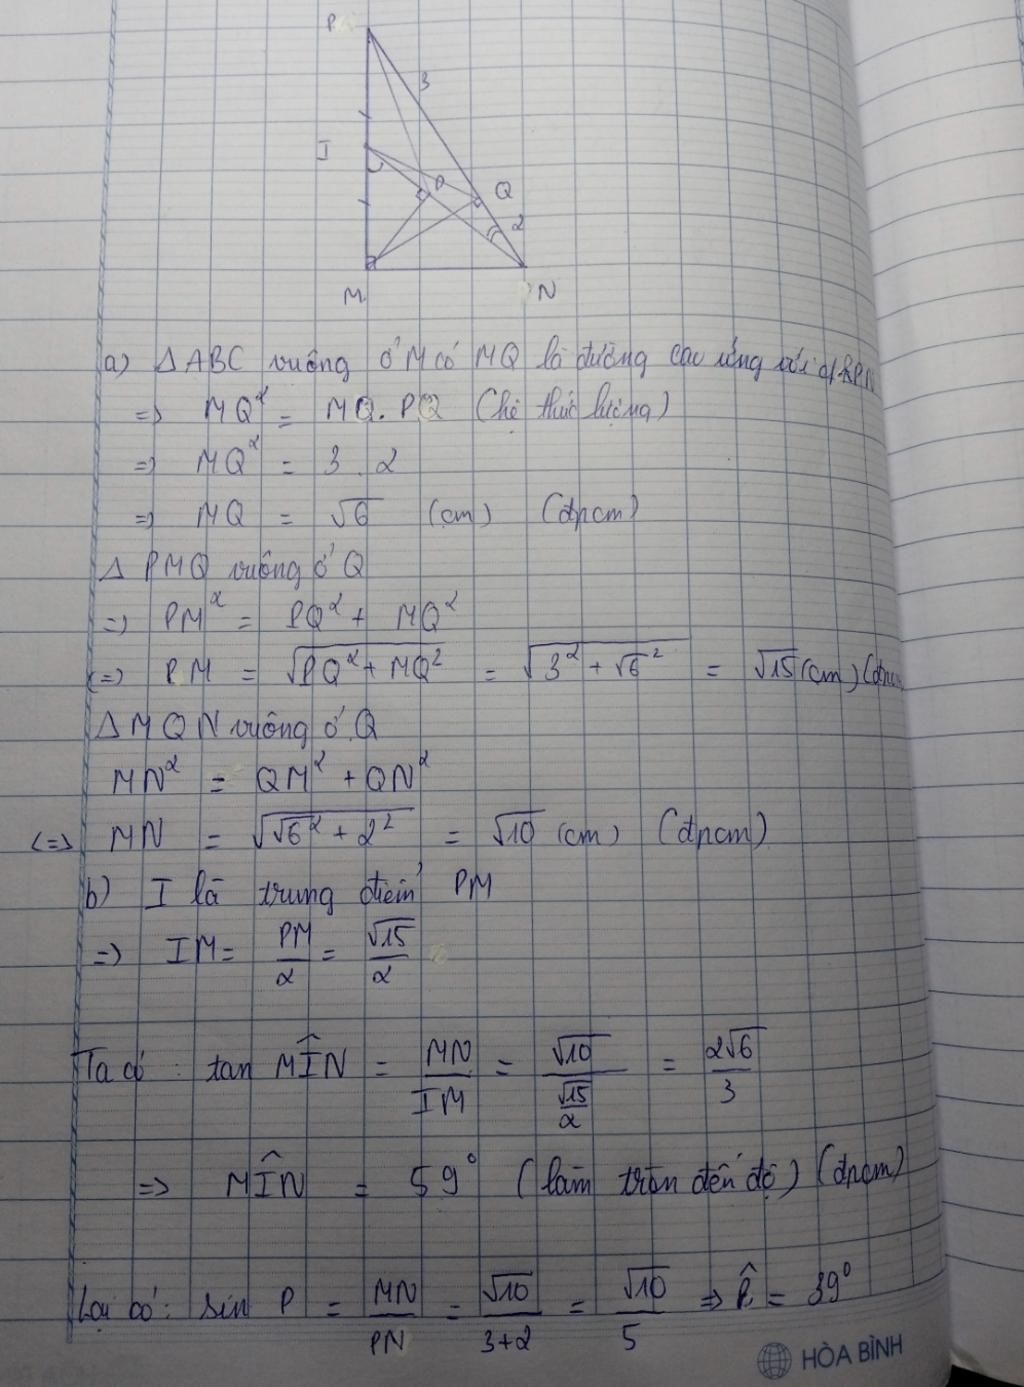 P
3
I
P
Q
2
M
N
a) Δ ABC vuông ở M có MQ là đường cao ứng với
=> MQ² = MQ. PQ (hệ thức lượng)
=> MQ² = 3 . 2
=> MQ = √6 (cm) (đpcm)
Δ PMQ vuông ở Q
=> PM² = PQ² + MQ²
(=) PM = √(PQ² + MQ²) = √(3² + √6²) = √15 (cm) (đpcm
Δ MQN vuông ở Q
MN² = QM² + QN²
(=) MN = √(√6² + 2²) = √10 (cm) (đpcm)
b) I là trung điểm PM
=> IM = PM/2 = √15/2
Ta có : tan MÎN = MN/IM = √10/(√15/2) = 2√6/3
=> MÎN = 59° (làm tròn đến độ) (đpcm)
Lại có: sin P = MN/PN = √10/(3+2) = √10/5 => P̂ = 39°
HÒA BÌNH